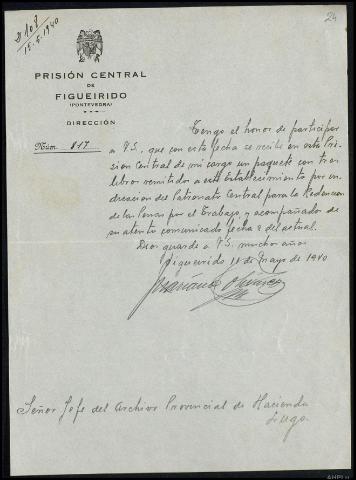 24
15.5.1940
PRISIÓN CENTRAL
DE
FIGUEIRIDO
(PONTEVEDRA)
DIRECCIÓN
Núm. 817
Tengo el honor de participar
a V.S. que con esta fecha se recibe en esta Pri-
sion Central de mi cargo un paquete con tres
libros remitidos a este Establecimiento por in-
dicacion del Patronato Central para la Redencion
de las Penas por el Trabajo, y acompañados de
su atento comunicado fecha 2 del actual.
Dios guarde a V.S. muchos años
Figueirido 11 de Mayo de 1940
Señor Jefe del Archivo Provincial de Hacienda
Lugo